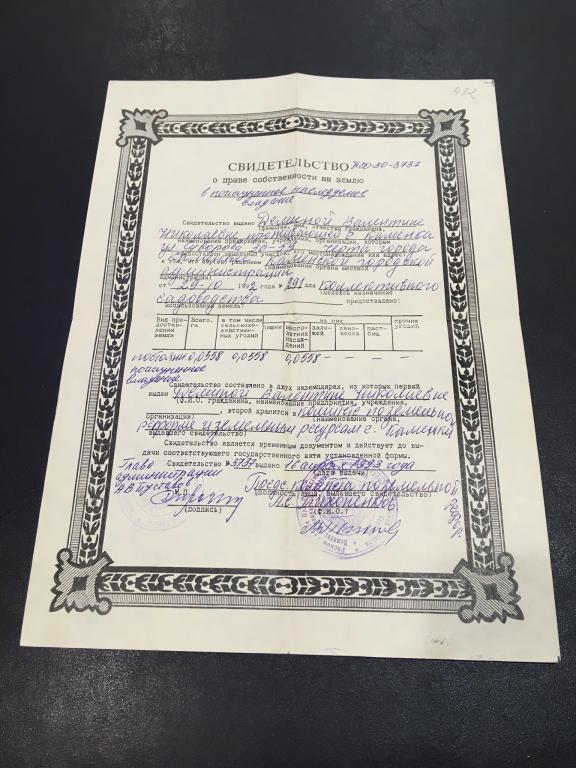 432
СВИДЕТЕЛЬСТВО
о праве собственности на землю
в пожизненное наследуемое
владение
Свидетельство выдано Деминой Валентине
(фамилия, имя, отчество гражданина,
Николаевне проживающей г. Каменка
наименование предприятия, учреждения, организации, которым
ул. Суворова
предоставлен земельный участок, его местонахождение или адрес)
в том, что Каменской городской
(наименование органа местной
администрации
администрации)
от 29-10 1992 года № 291 для коллективного
(целевое назначение
садоводства предоставлено:
использования земель)
Вид предоставления земли Всего, га в том числе сельскохозяйственных угодий из них прочих угодий
пашни многолетних насаждений залежей сенокосов пастбищ
0,0558 0,0558 0,0558 — — — —
пожизненное
владение
Свидетельство составлено в двух экземплярах, из которых первый
выдан Деминой Валентине Николаевне
(Ф.И.О. гражданина, наименование предприятия, учреждения,
, второй хранится в Комитете по земельной
организации) (наименование органа,
реформе и земельным ресурсам г. Каменки
выдавшего свидетельство)
Свидетельство является временным документом и действует до выдачи соответствующего государственного акта установленной формы.
Свидетельство № 3737 выдано 16 апреля 1993 года
(дата выдачи)
Глава
администрации
Пред. комитета по земельной
(должность лица, выдавшего свидетельство)
М.П.
(подпись) (Ф.И.О.)